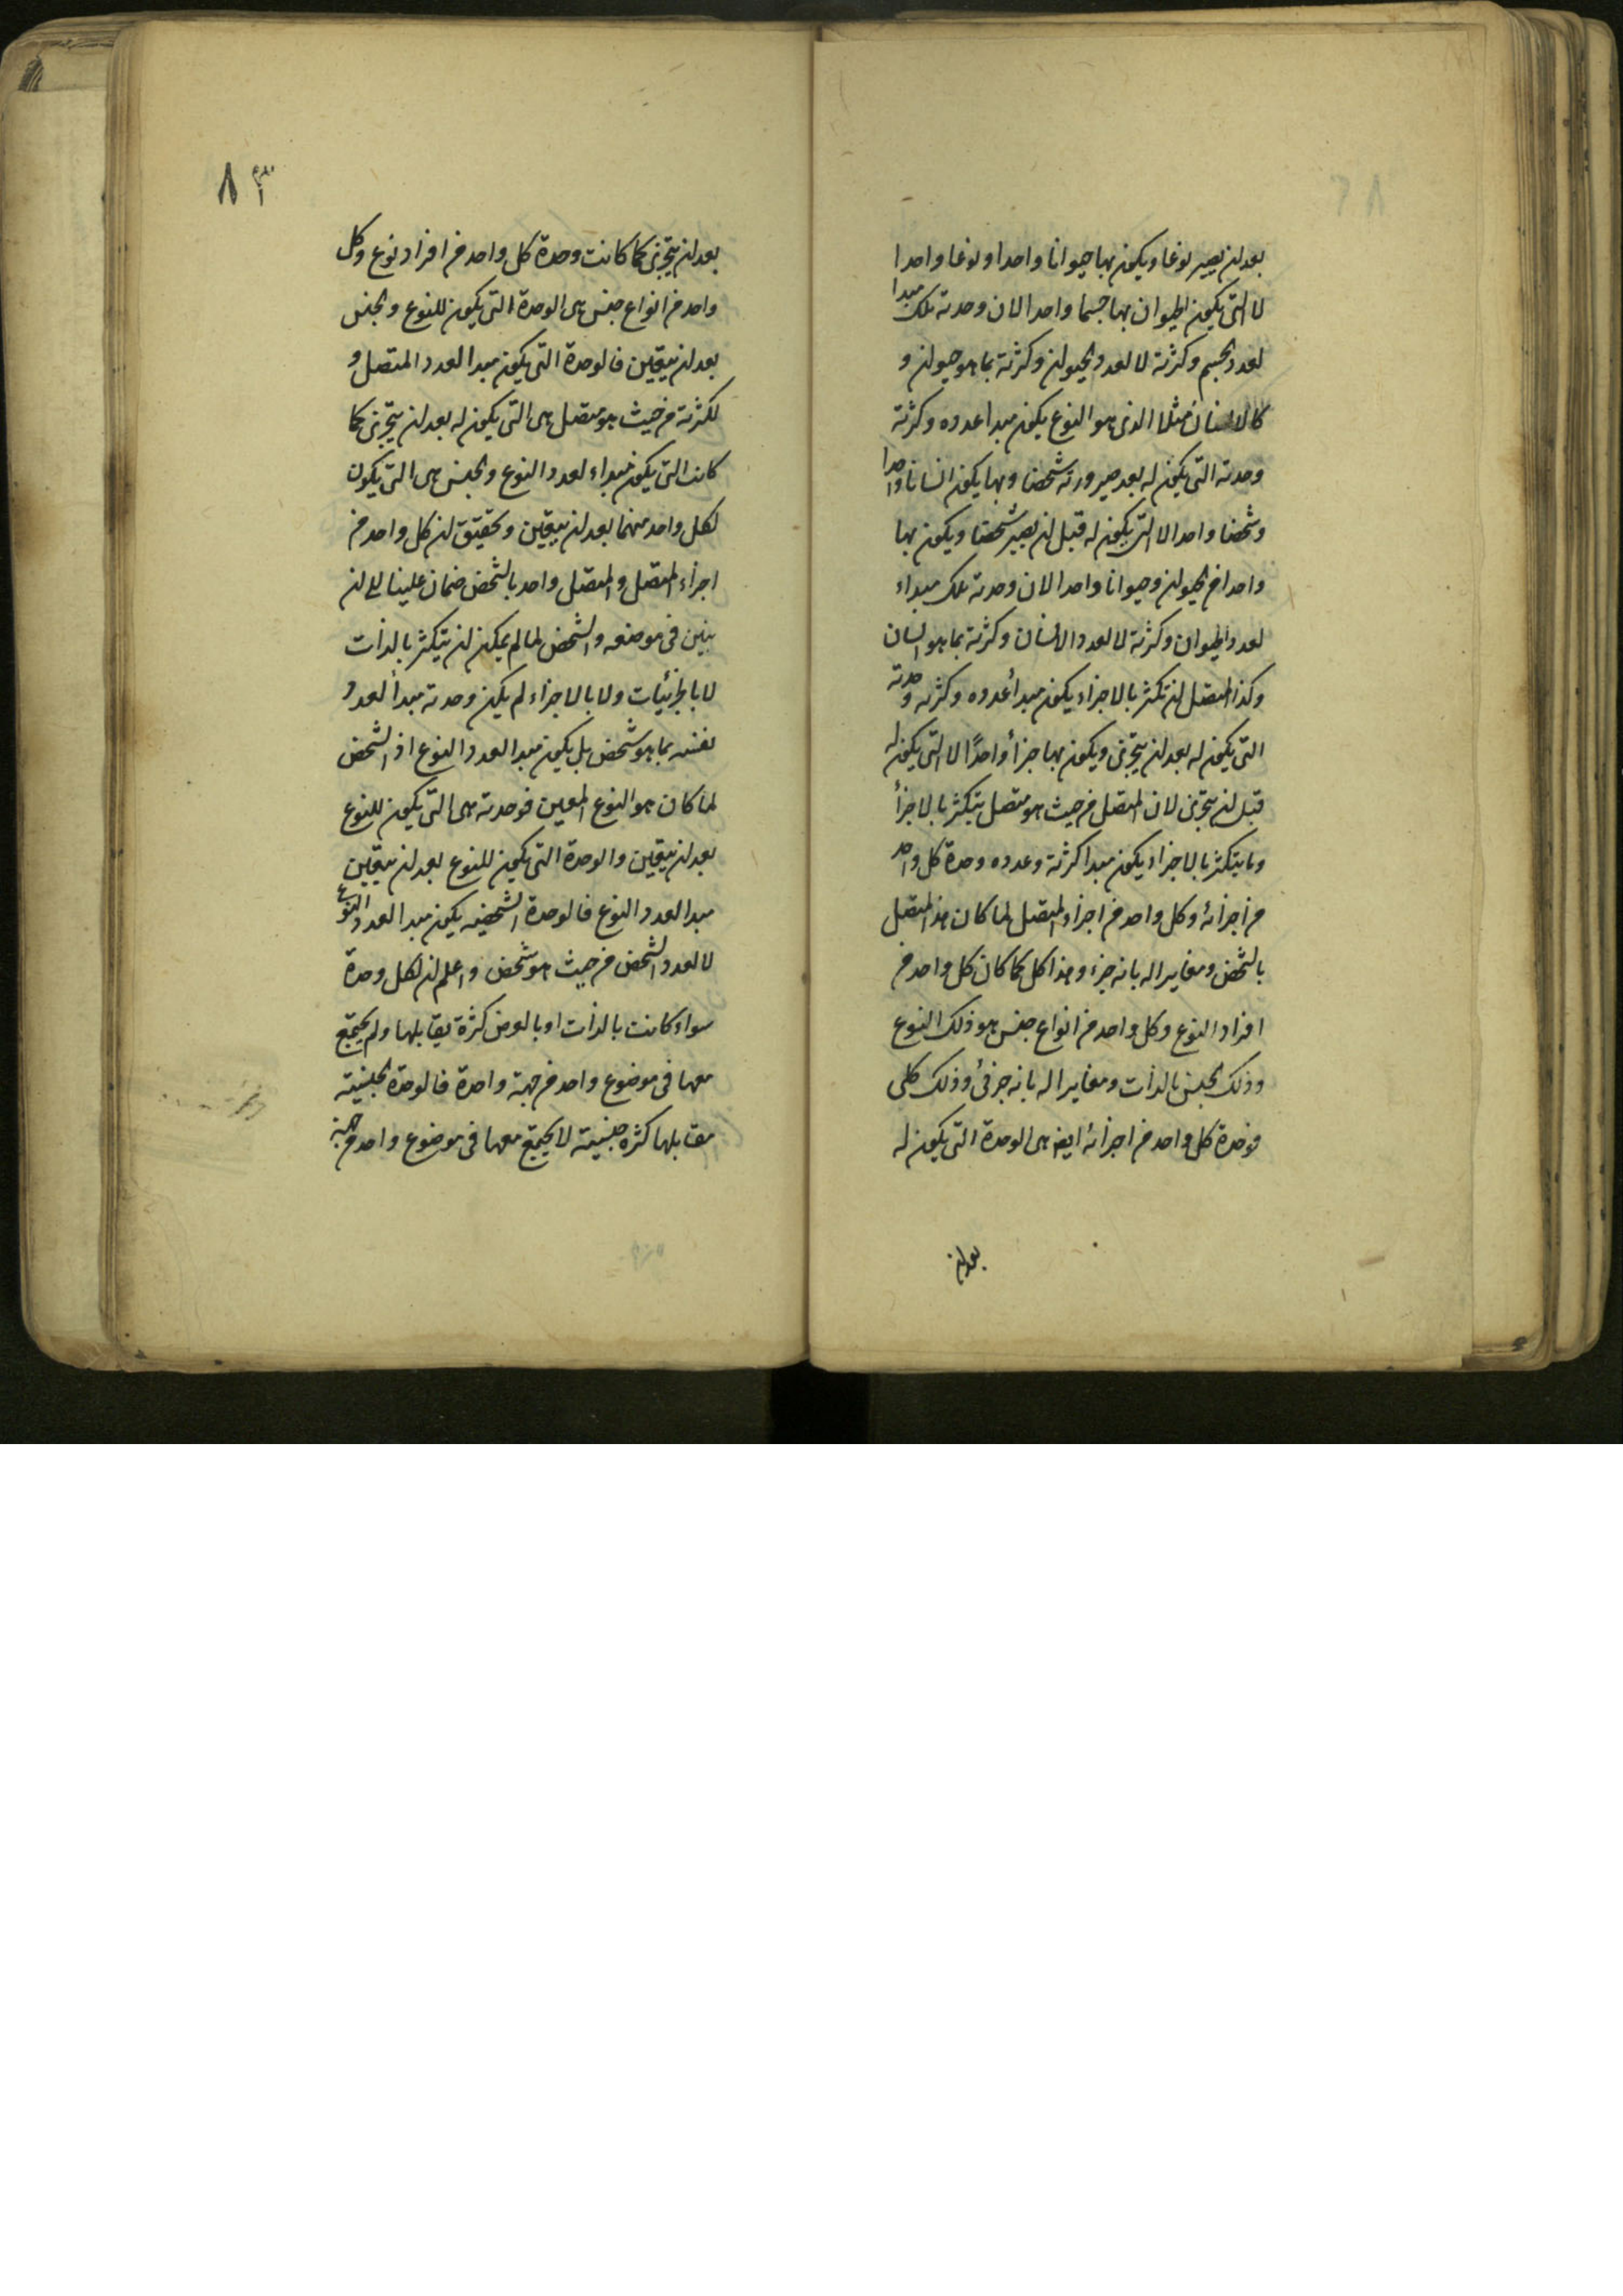 بعد ان يصير نوعا ويكون بها حيوانا واحدا ونوعا واحدا
لا التى يكون الحيوان بها جسما واحدا لان وحدته تلك مبدا
لعدد الجسم وكثرته لا لعدد الحيوان وكثرته بما هو حيوان و
كالانسان مثلا الذى هو النوع يكون مبدا عدده وكثرته
وحدته التى يكون له بعد صيرورته شخصا وبها يكون انسانا واحدا
وشخصا واحدا لا التى يكون له قبل ان يصير شخصا ويكون بها
واحدا من الحيوان وحيوانا واحدا لان وحدته تلك مبداء
لعدد الحيوان وكثرته لا لعدد الانسان وكثرته بما هو انسان
وكذا المتصل ان تكثر بالاجزاء يكون مبدأ عدده وكثرته وحدته
التى يكون له بعد ان يتجزى ويكون بها جزأ واحدًا لا التى يكون له
قبل ان يتجزى لان المتصل من حيث هو متصل يتكثر بالاجزأ
وما يتكثر بالاجزاء يكون مبدا كثرته وعدده وحدة كل واحد
من اجزائه وكل واحد من اجزاء المتصل لما كان هذا المتصل
بالشخص ومغايرا له بانه جزء وهذا كل كما كان كل واحد من
افراد النوع وكل واحد من انواع جنس هو ذلك النوع
وذلك الجنس بالذات ومغايرا له بانه جزئى وذلك كلى
فوحدة كل واحد من اجزائه ايض هى الوحدة التى يكون له
بعد ان
٨٣
بعد ان يتجزى كما كانت وحدة كل واحد من افراد نوع وكل
واحد من انواع جنس هى الوحدة التى يكون للنوع والجنس
بعد ان يتعين فالوحدة التى يكون مبدا لعدد المتصل و
لكثرته من حيث هو متصل هى التى يكون له بعد ان يتجزى كما
كانت التى يكون مبداء لعدد النوع والجنس هى التى يكون
لكل واحد منهما بعد ان يتعين وتحقيق ان كل واحد من
اجزاء المتصل والمتصل واحد بالشخص ضمان علينا الى ان
نبين فى موضعه والشخص لما لم يمكن ان يتكثر بالذات
لا بالجزئيات ولا بالاجزاء لم يكن وحدته مبدأ لعدد
نفسه بما هو شخص بل يكون مبدا لعدد النوع اذ الشخص
لما كان هو النوع المعين فوحدته هى التى يكون للنوع
بعد ان يتعين والوحدة التى يكون للنوع بعد ان يتعين
مبدا لعدد النوع فالوحدة الشخصيه يكون مبدا لعدد النوع
لا لعدد الشخص من حيث هو شخص واعلم ان لكل وحدة
سواء كانت بالذات او بالعرض كثرة يقابلها ولم يجتمع
معها فى موضوع واحد من جهة واحدة فالوحدة الجنسيته
مقابلها كثره جنسيته لا يجتمع معها فى موضوع واحد من جهة